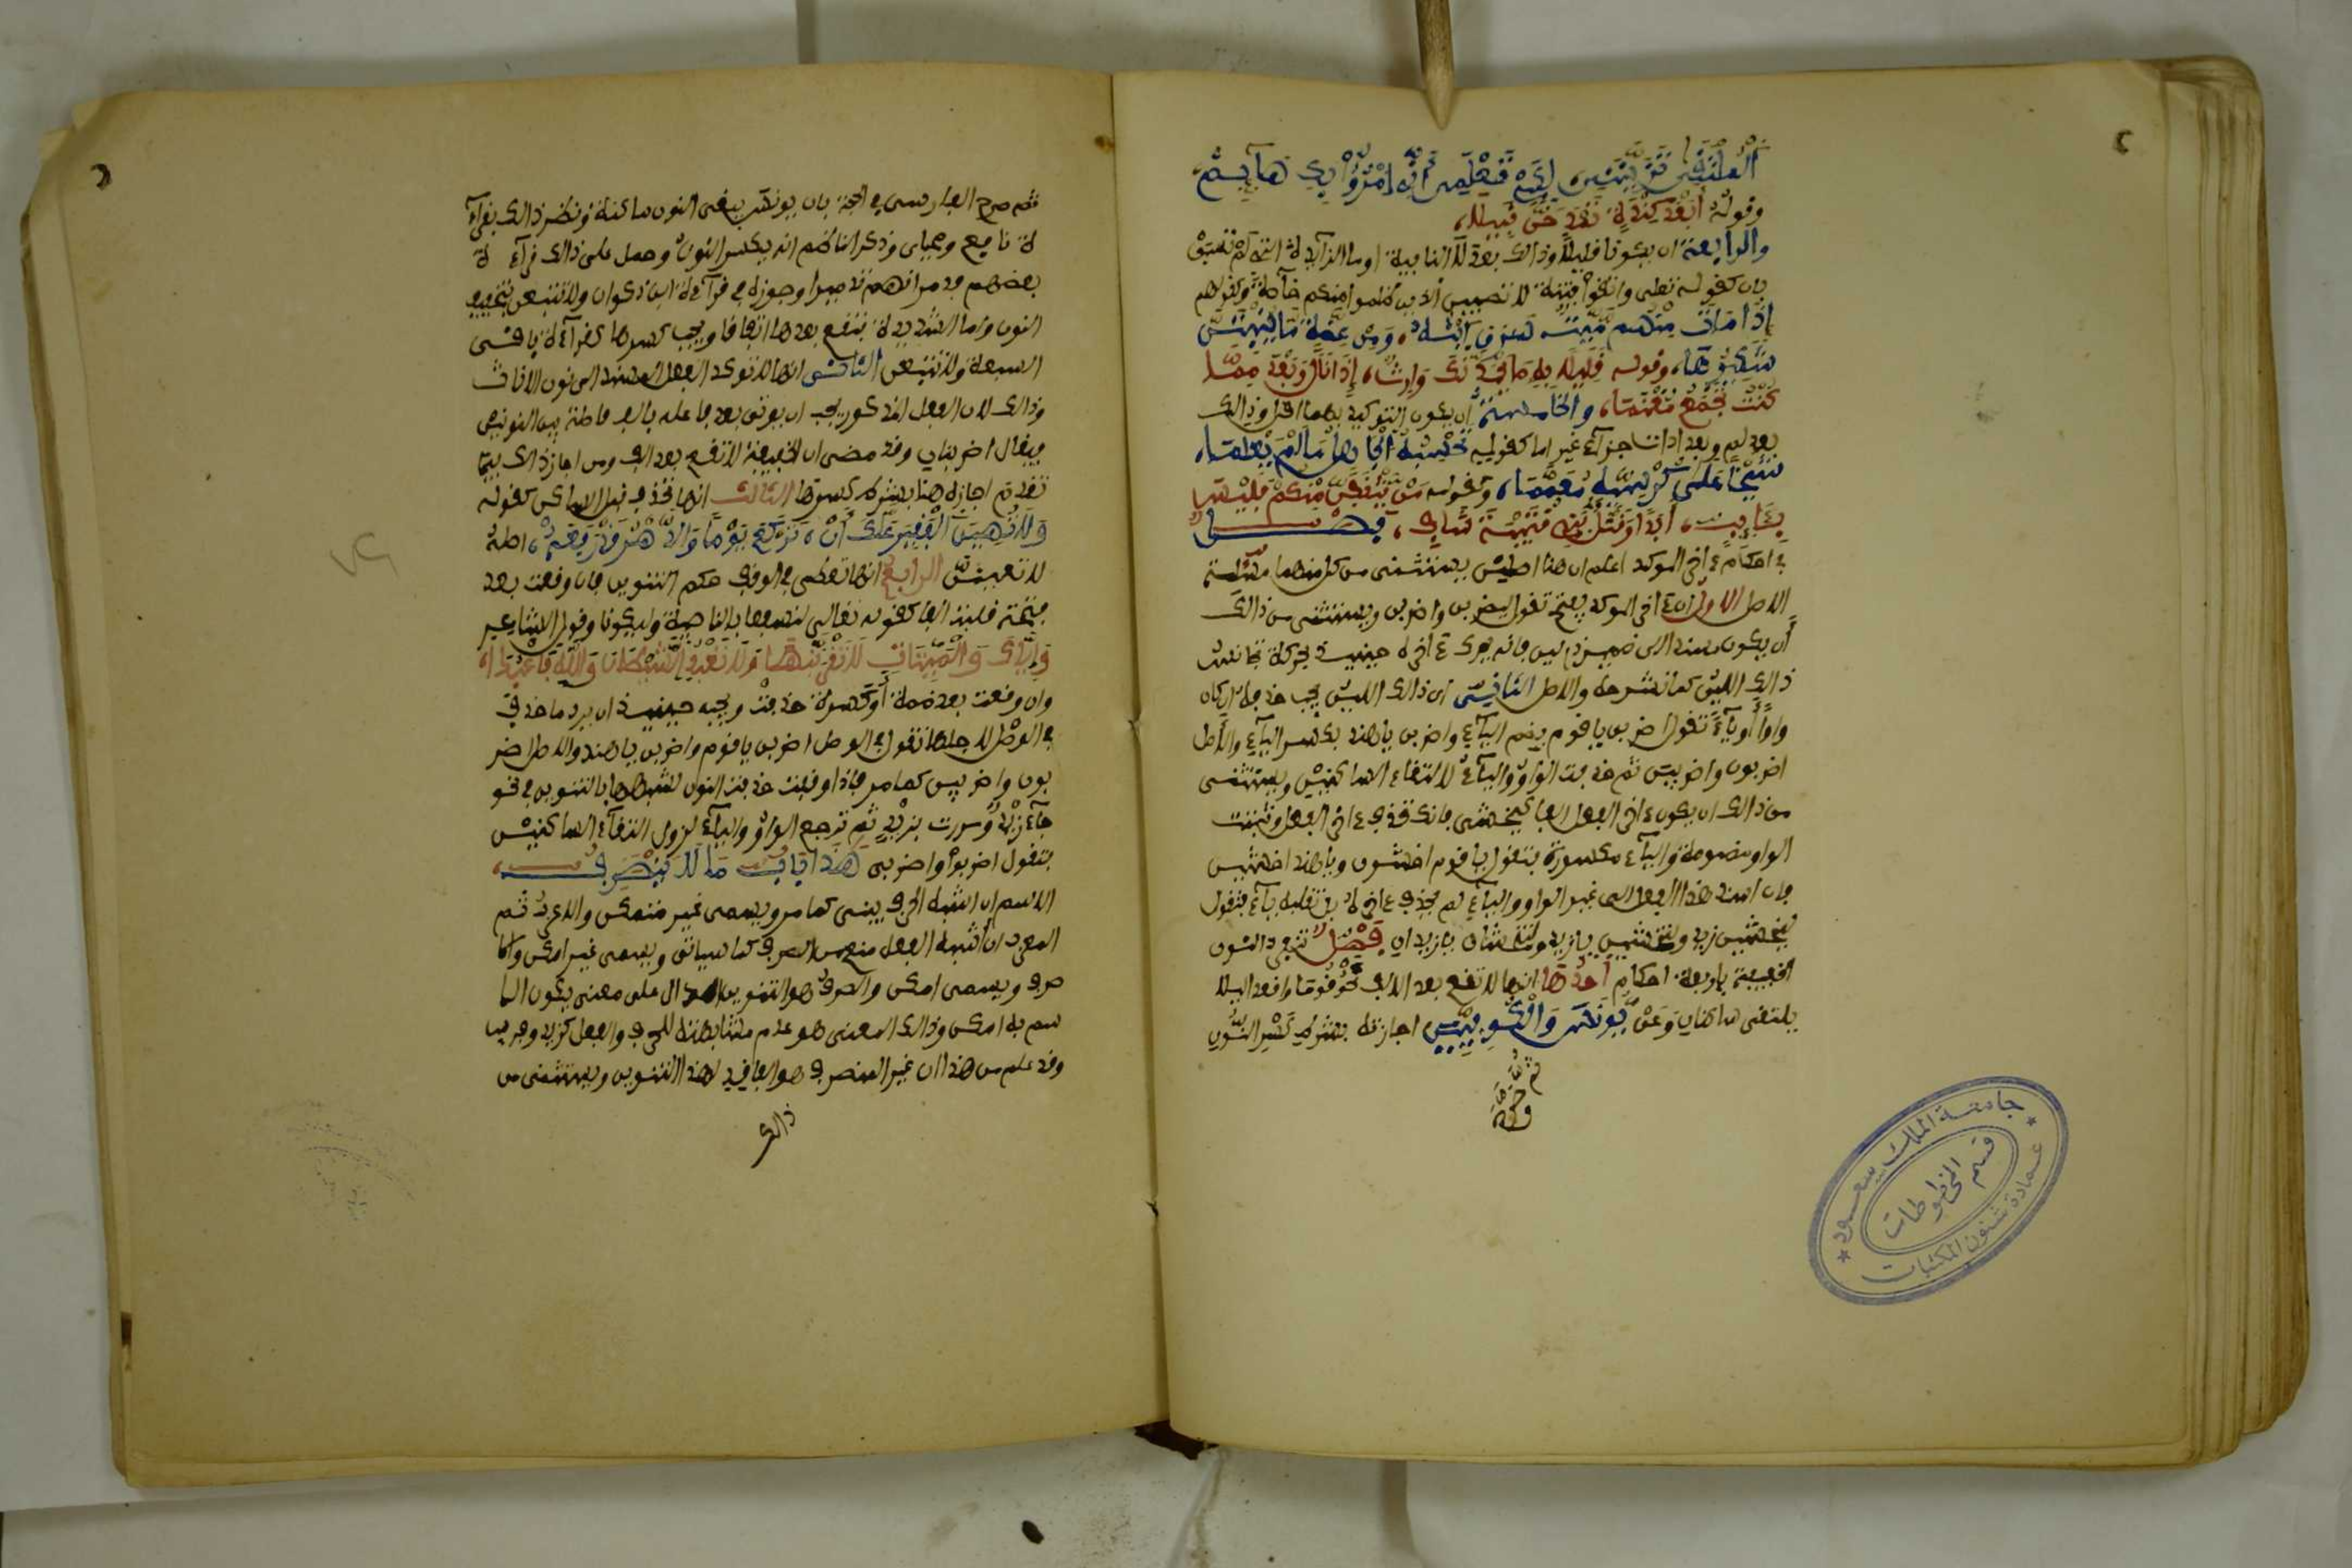 الملتقى ترينني لكي تعلمي أني امرؤ بك هائم
وقوله أبعد كندة تمدحن قبيلا
والرابعة ان يكون قليلا وذالك بعد لا النافية او ما الزائدة التي لم تسبق
بان كقوله تعلى واتقوا فتنة لا تصيبن الذين ظلموا منكم خآصة وكقولهم
إذا مات منهم ميت سرق ابنه ومن عضة ما ينبتن
شكيرها، وقوله قليلا به ما يحمدنك وارث، إذا نال مما
كنت تجمع مغنما، والخامسة أن يكون التوكيد بهما اقل وذالك
بعد لم وبعد ادات جزآء غير اما كقوله يحسبه الجاهل ما لم يعلما،
شيخا على كرسيه معمما، وكقوله من تثقفن منكم فليس
بئايب، أبدا وقتل بني قتيبة شاف، فصل
في احكام ءاخر الموكد اعلم ان هنا اصلين يستثنى من كل منهما مسئلة
الاصل الاول ان ءاخر الموكد يفتح تقول ليضربن واضربن ويستثنى من ذالك
أن يكون مسندا الى ضمير ذي لين فانه يحرك ءاخره حينيذ بحركة تجانس
ذالك اللين كما نشرحه والاصل الثاني ان ذالك اللين يجب حذفه ان كان
واوا أو يآء تقول اضربن يا قوم بضم البآء واضربن يا هند بكسر البآء والأصل
اضربون واضربين ثم حذفت الواو واليآء لالتقاء الساكنين ويستثنى
من ذالك ان يكون ءاخر الفعل الفا كيخشى فانك تحذف ءاخر الفعل وتثبت
الواو مضمومة واليآء مكسورة فتقول يا قوم اخشون ويا هند اخشين
فان اسند هذا الفعل الى غير الواو واليآء لم يحذف ءاخره بل تقلبه يآء فتقول
ليخشين زيد ولتخشين يا زيد ولتخشيان يا زيدان فصل تنفرد النون
الخفيفة باربعة احكام أحدها انها لا تقع بعد الالف نحو قوما واقعدا ليلا
يلتقى ساكنان وعن يونس والكوفيين اجازته بشرط كسر النون
ثم
ثم صرح الفارسي في الحجة بان يونس يبقى النون ساكنة ونظر ذالك بقرآء
ة نافع ومحياى وذكر الناظم انه يكسر النون وحمل على ذالك قرآءة
بعضهم فدمرانهم تدميرا وجوزه في قرآءة ابن ذكوان ولا تتبعن بتخفيف
النون واما الشديدة فتقع بعدها اتفاقا ويجب كسرها كقرآءة باقى
السبعة ولا تتبعن الثانى انها لا توكد الفعل المسند الى نون الاناث
وذالك لان الفعل المذكور يجب ان يوتى بعد فاعله بالف فاصلة بين النونين
فيقال اضربنان وقد مضى ان الخفيفة لا تقع بعد الالف ومن اجاز ذالك فيما
تقدم اجازه هنا بشرط كسرها الثالث انها تحذف قبل الساكن كقوله
ولا تهين الفقير علك أن، تركع يوما والدهر قد رفعه، اصله
لا تهينن الرابع انها تعطى في الوقف حكم التنوين فان وقعت بعد
فتحة قلبت الفا كقوله تعالى لنسفعا بالناصية وليكونا وقول الشاعر
وإياك والميتات لا تقربنها ولا تعبد الشيطان والله فاعبدا،
وان وقعت بعد ضمة أو كسرة حذفت ويجب حينيذ ان يرد ما حذف
في الوصل لاجلها تقول في الوصل اضربن يا قوم واضربن يا هند والاصل اضر
بون واضربين كما مر فاذا وقفت حذفت النون لشبهها بالتنوين في نحو
جآء زيد ومررت بزيد ثم ترجع الواو واليآء لزوال التقآء الساكنين
فتقول اضربوا واضربي هذا باب ما لا ينصرف
الاسم ان اشبه الحرف يبنى كما مر ويسمى غير متمكن والا اعرب ثم
المعرب ان أشبه الفعل منع من الصرف كما سياتى ويسمى غير امكن والا
صرف ويسمى امكن والصرف هو التنوين الدال على معنى يكون الا
سم به امكن وذالك المعنى هو عدم مشابهته للحرف والفعل كزيد وفرس
وقد علم من هذا ان غير المنصرف هو الفاقد لهذا التنوين ويستثنى من
ذالك
جامعة الملك سعود
قسم المخطوطات
عمادة شئون المكتبات